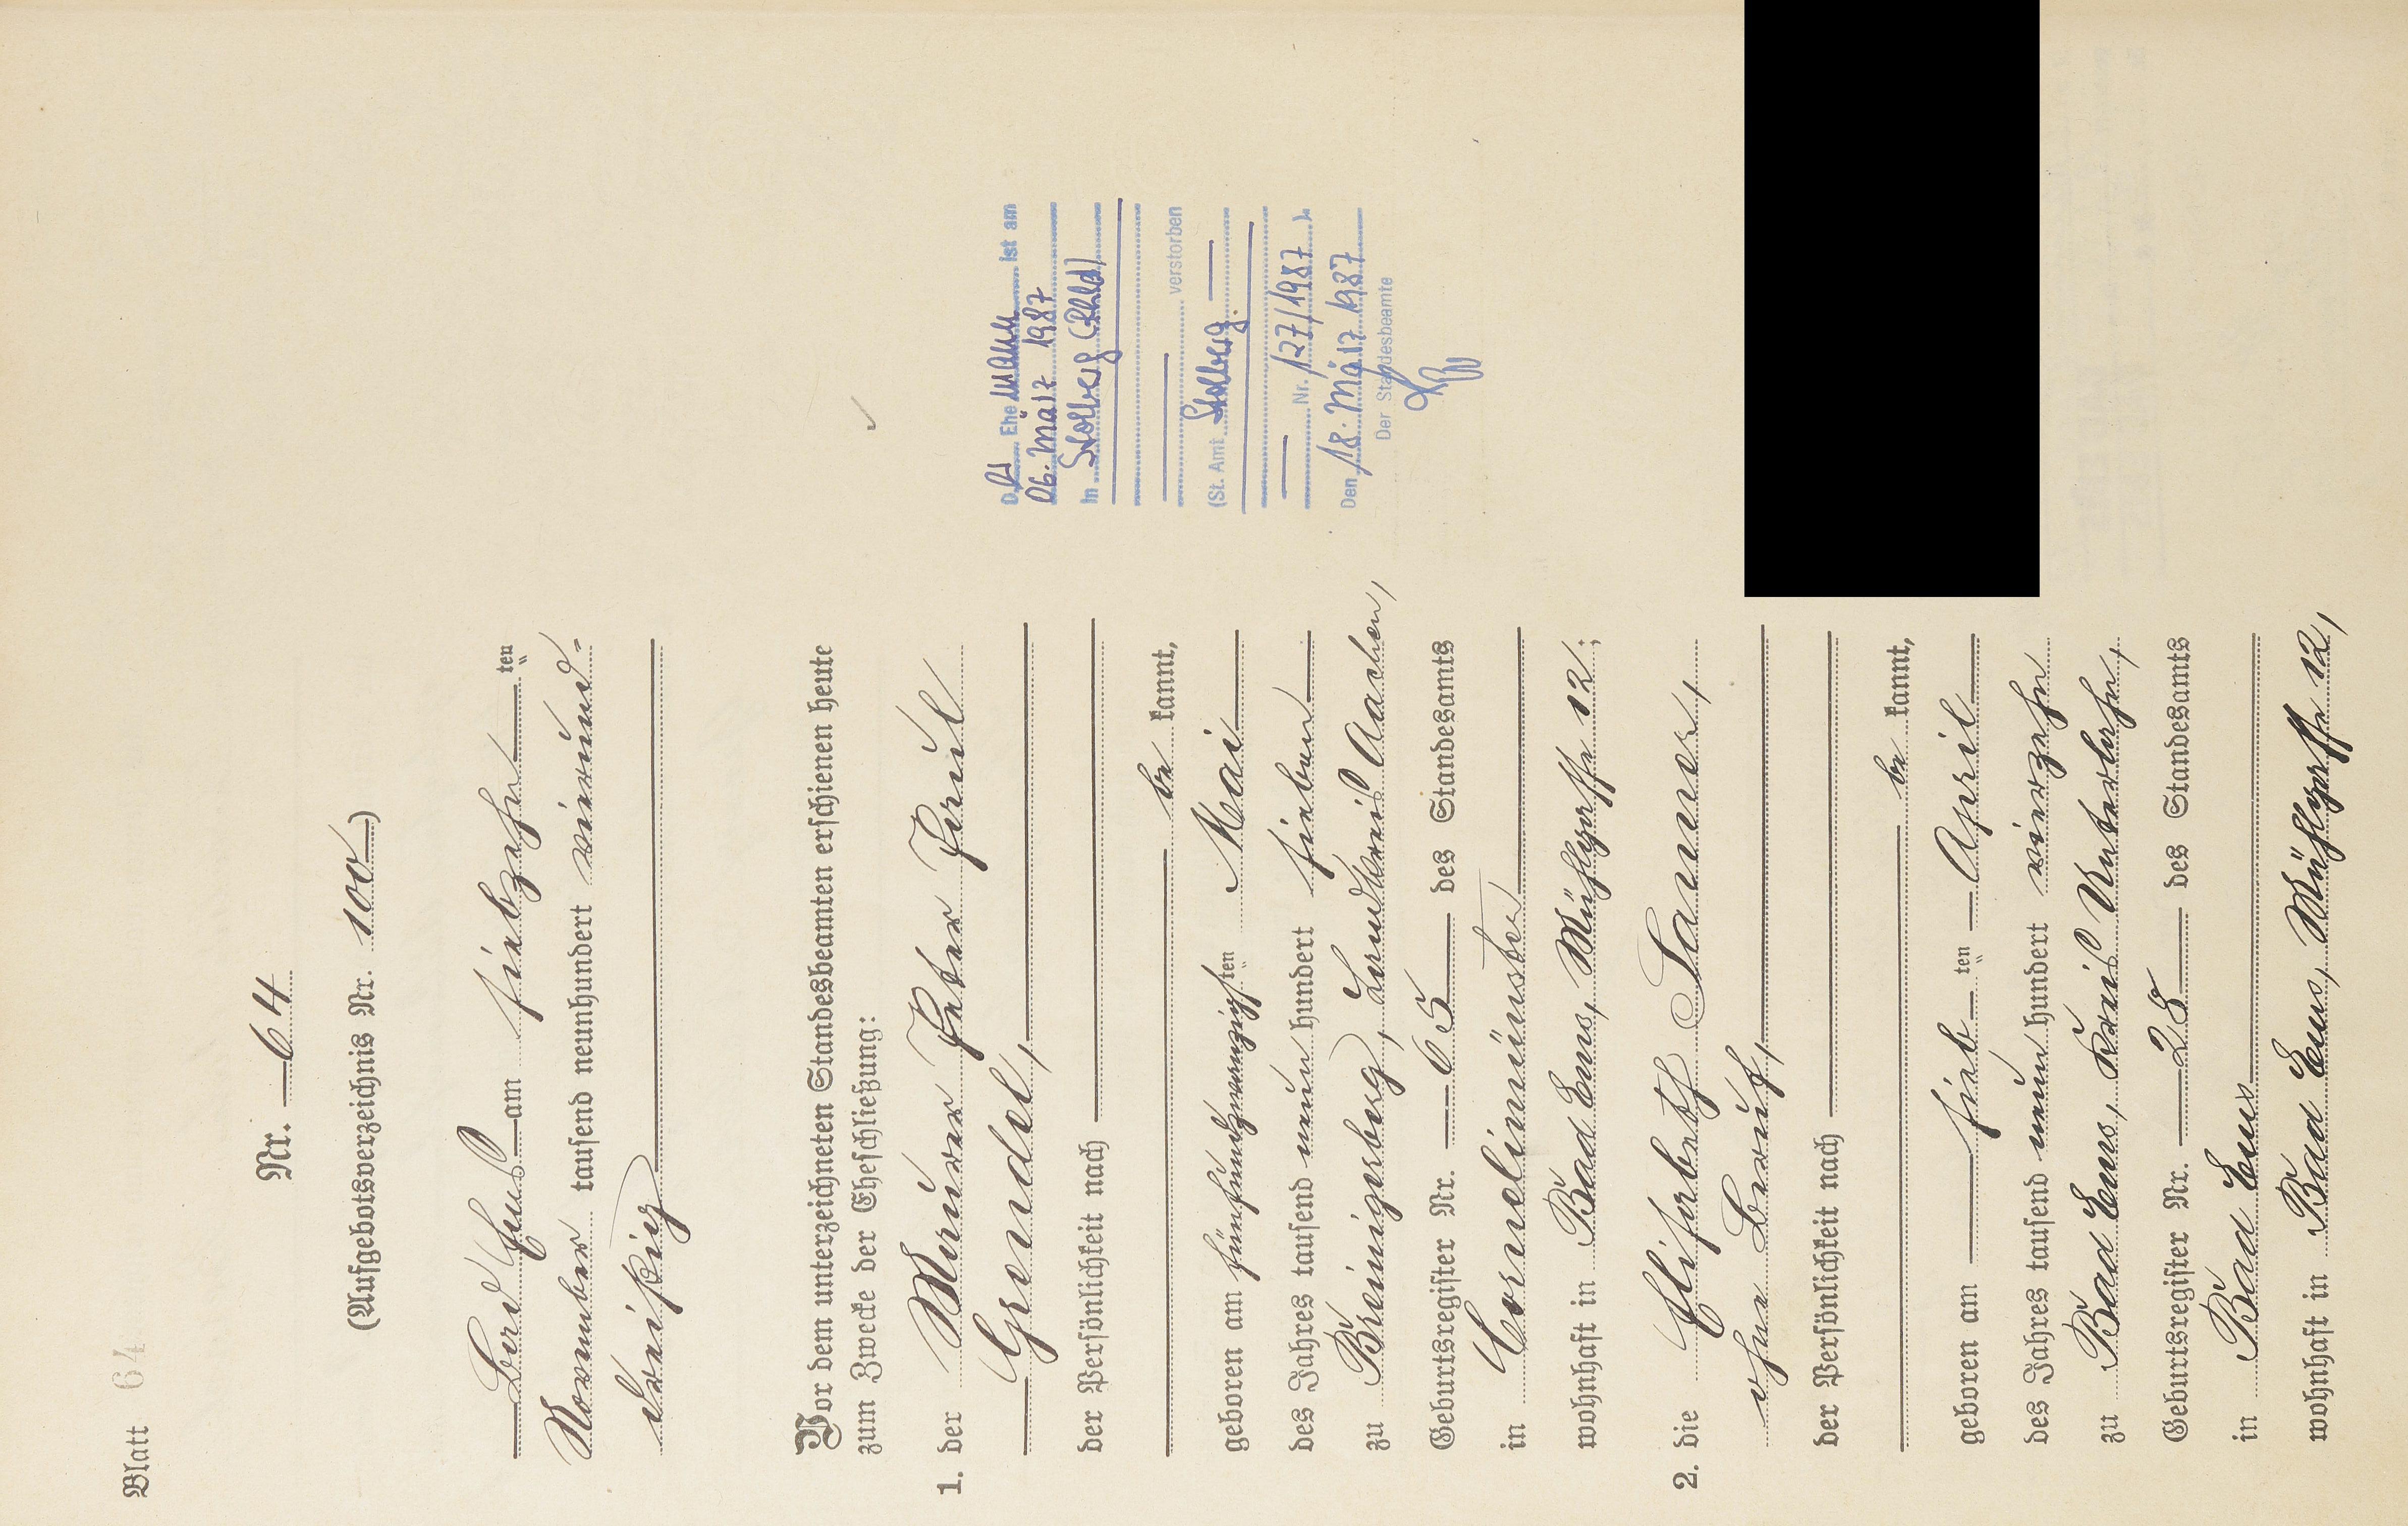 Blatt 64
Nr. 64
(Aufgebotsverzeichnis Nr. 100)
Bad Ems am siebzehn ten
November tausend neunhundert vierund-
dreißig
Vor dem unterzeichneten Standesbeamten erschienen heute
zum Zwecke der Eheschließung:
1. der Maurer Peter Paul
Grendel,
der Persönlichkeit nach
be kannt,
geboren am fünfundzwanzigsten Mai
des Jahres tausend neun hundert sieben
zu Breinigerberg, Landkreis Aachen,
Geburtsregister Nr. 65 des Standesamts
in Cornelimünster
wohnhaft in Bad Ems, Mühlgasse 12;
2. die Elisabeth Sauer,
ohne Beruf,
der Persönlichkeit nach
be kannt,
geboren am sieb ten April
des Jahres tausend neun hundert vierzehn
zu Bad Ems, Kreis Unterlahn,
Geburtsregister Nr. 28 des Standesamts
in Bad Ems
wohnhaft in Bad Ems, Mühlgasse 12,
Der Ehemann ist am
06. März 1987
in Stolberg (Rhld)
verstorben
(St. Amt Stolberg
Nr. 127/1987)
Den 18. März 1987
Der Standesbeamte